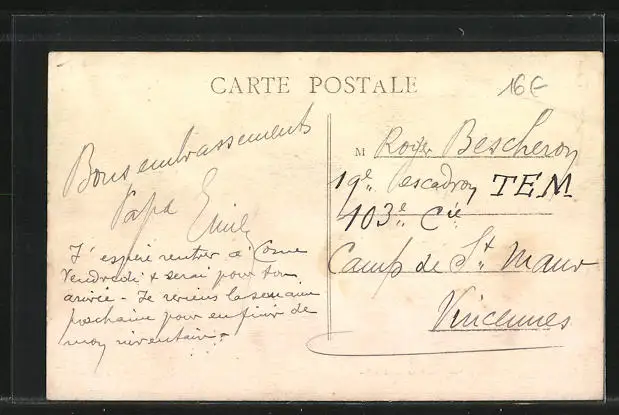 CARTE POSTALE
16€
Bons embrassements
Papa Emile
J'espère rentrer à Cosne
Vendredi & serai pour ton
arrivée - Je reviens la semaine
prochaine pour en finir de
mon inventaire.
M Roger Bescheron
19e escadron TEM
103e Cie
Camp de St. Maur
Vincennes